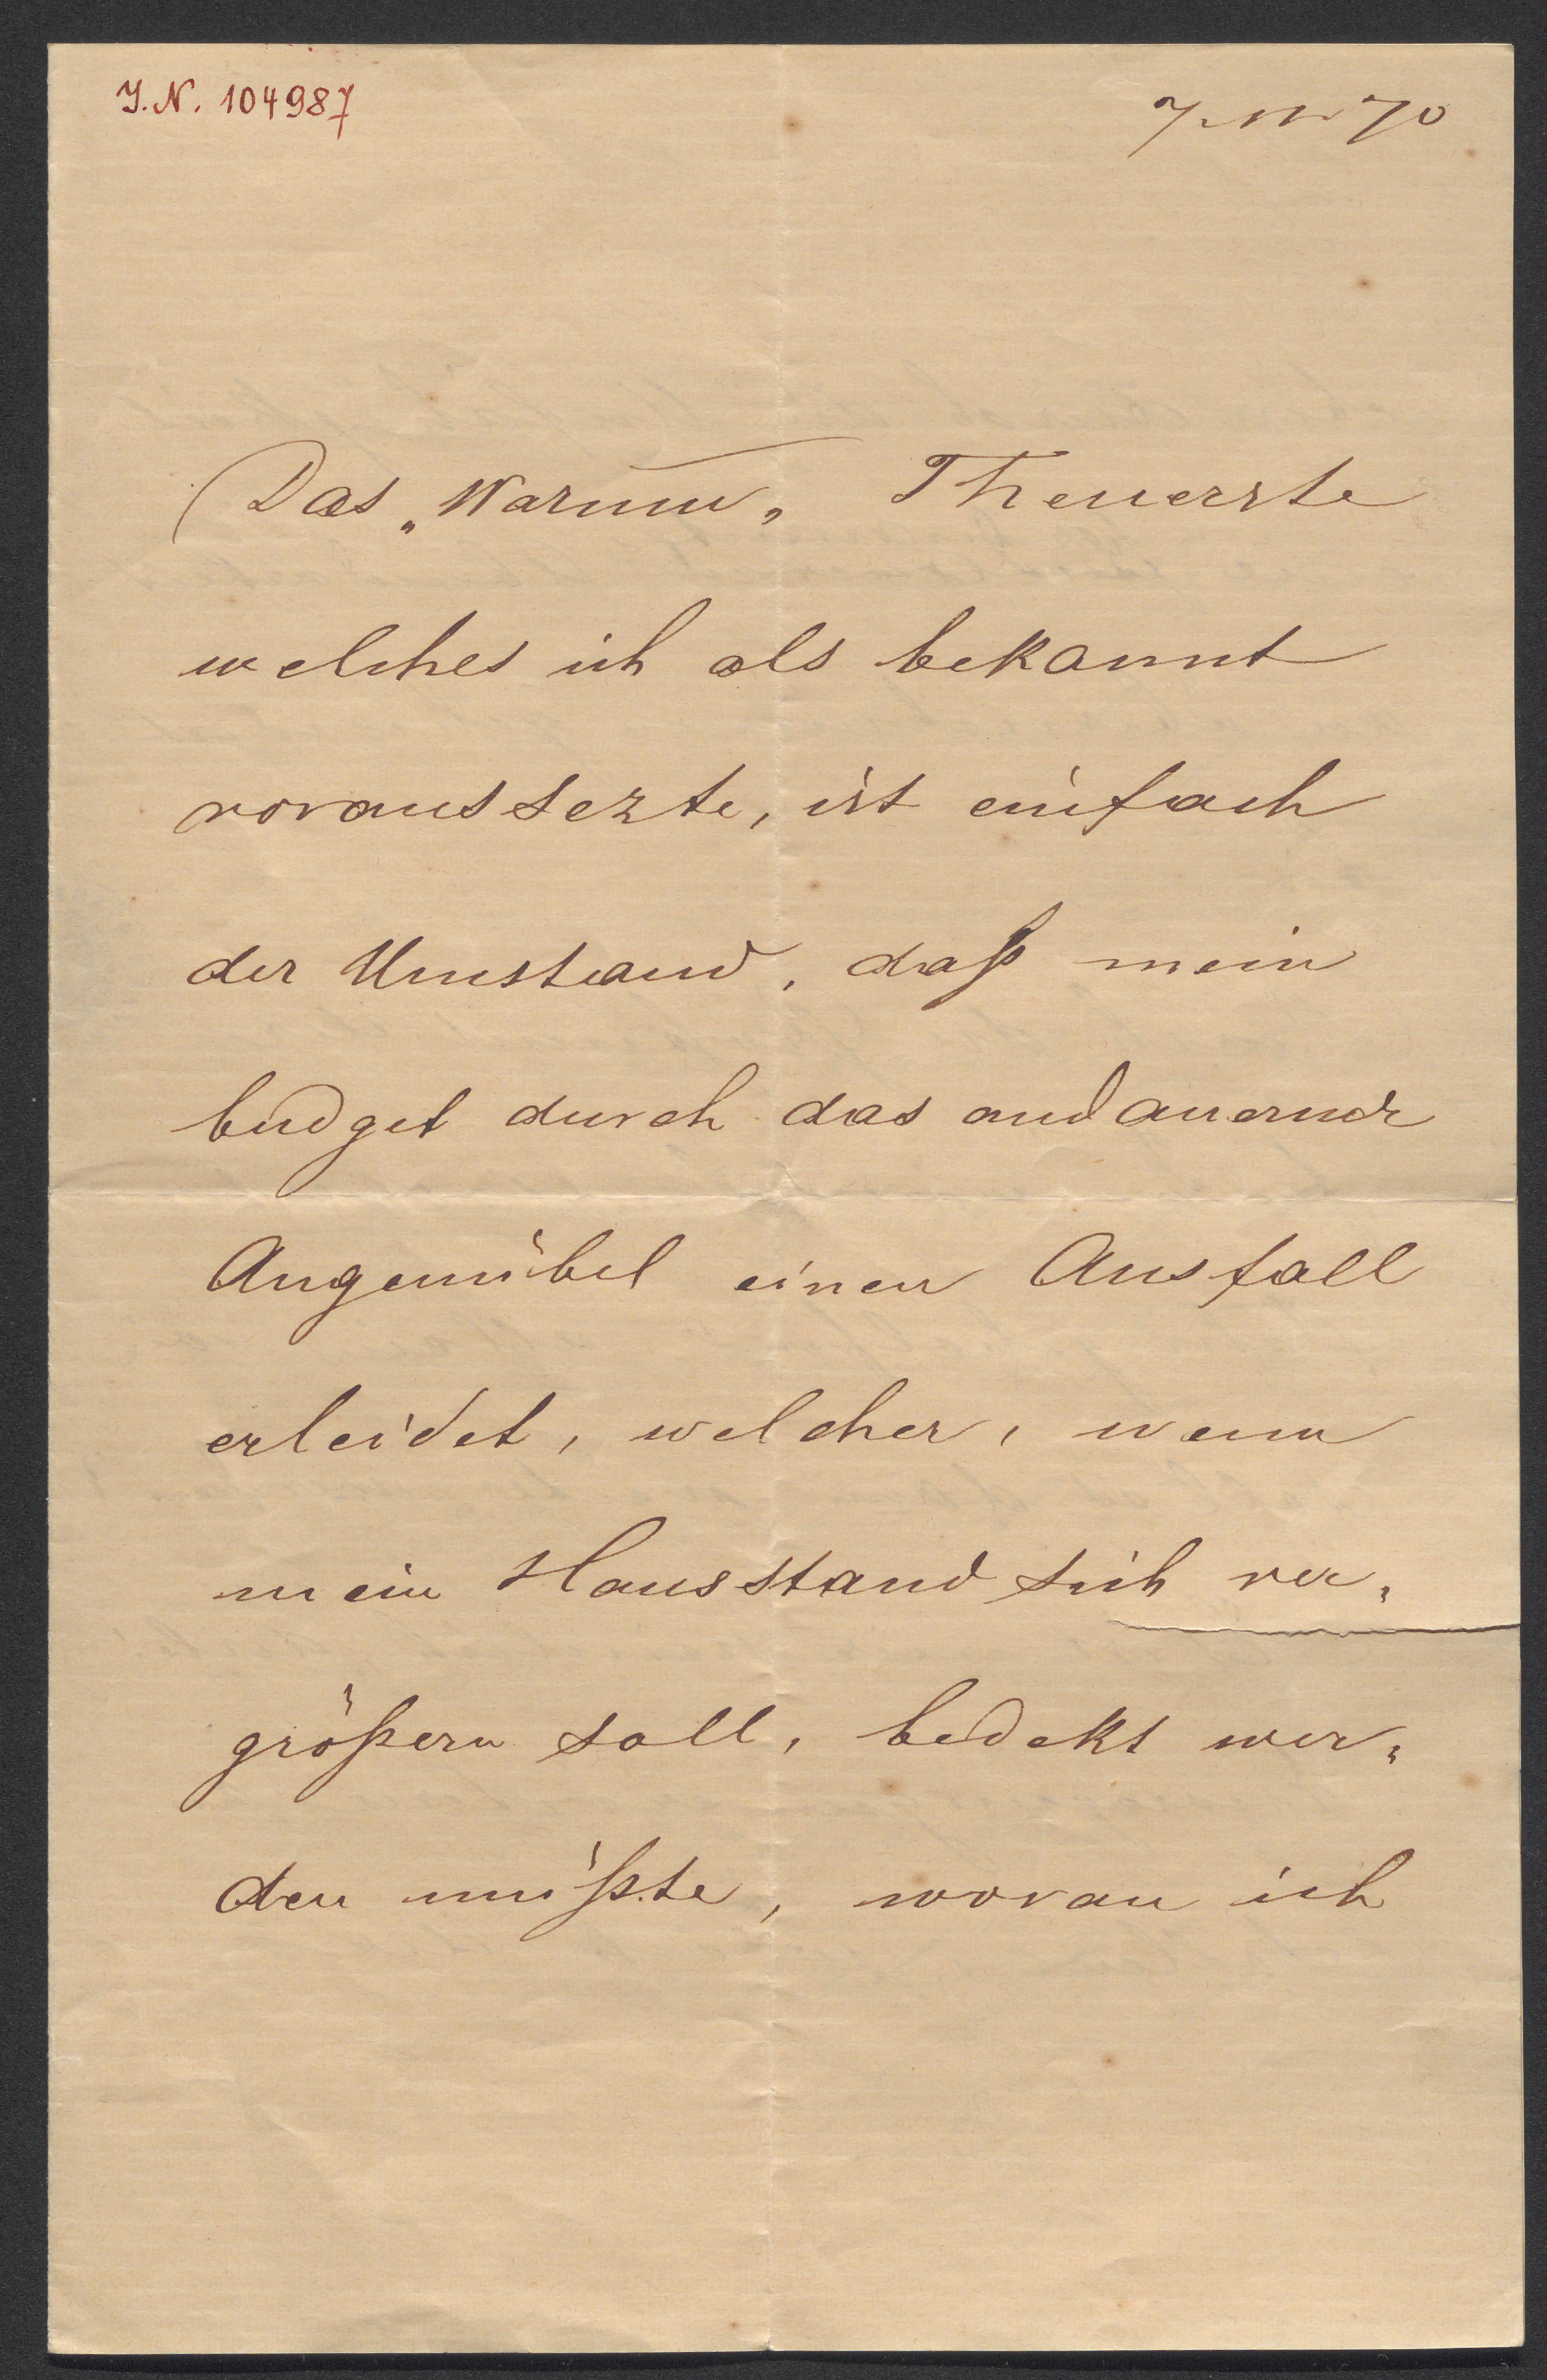 I.N. 104987
7. 11. 70
Das „Warum„ Theuerste
welches ich als bekannt
voraussezte, ist einfach
der Umstand, daß mein
budget durch das andauernde
Augenübel einen Ausfall
erleidet, welcher, wenn
mein Hausstand sich ver„
größern soll, bedekt wer„
den müßte, woran ich